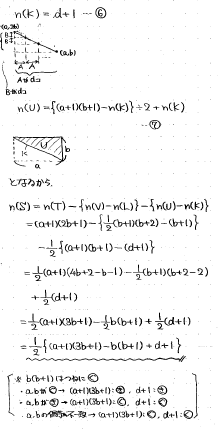 n(K) = d+1 … ⑥
(a,b)
A A
Aがdコ
Bがdコ
n(U) = {(a+1)(b+1)-n(K)} ÷ 2 + n(K)
… ⑦
U
K
b
a
となるから、
n(S) = n(T) - {n(V)-n(L)} - {n(U)-n(K)}
= (a+1)(2b+1) - {½(b+1)(b+2) - (b+1)}
- ½{(a+1)(b+1) - (d+1)}
= ½(a+1)(4b+2-b-1) - ½(b+1)(b+2-2)
+ ½(d+1)
= ½(a+1)(3b+1) - ½b(b+1) + ½(d+1)
= ½{(a+1)(3b+1) - b(b+1) + d+1}
※ b(b+1)はつねに
・a,bが → (a+1)(3b+1): , d+1:
・a,bが → (a+1)(3b+1): , d+1:
・a,bの偶奇が不一致 → (a+1)(3b+1): , d+1: